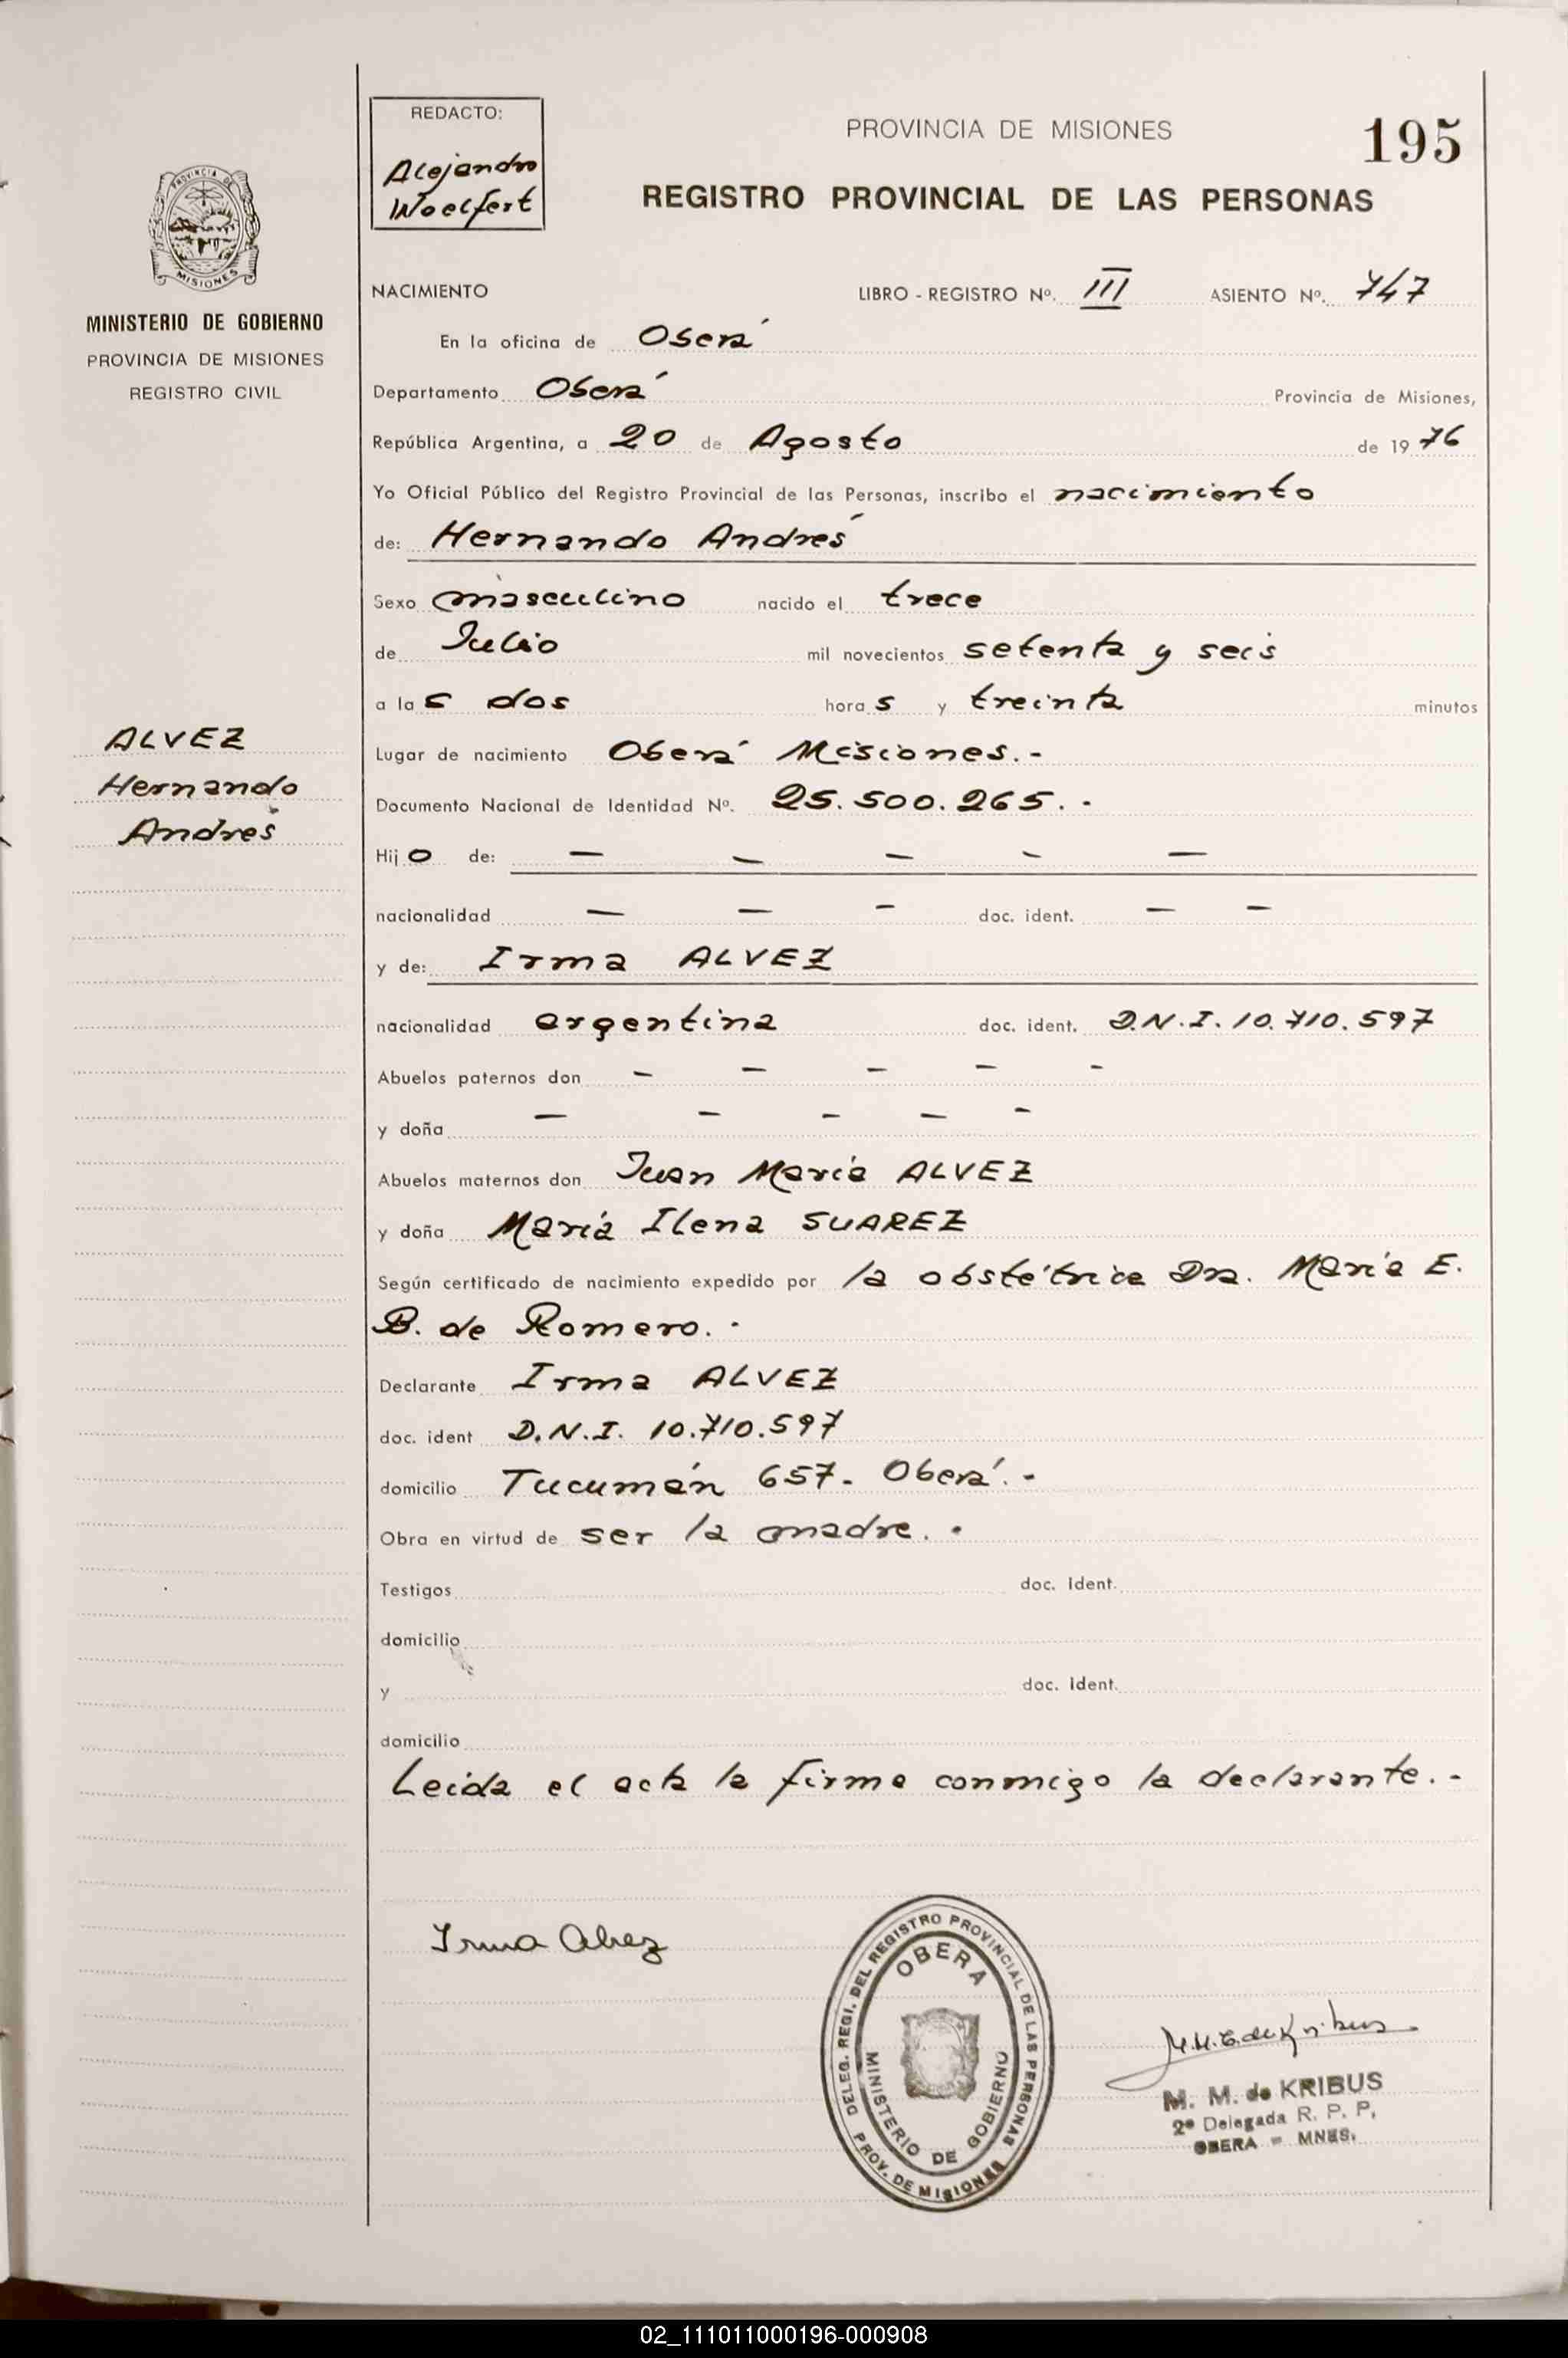 REDACTO:
Alejandro
Woelfert
PROVINCIA DE MISIONES
195
REGISTRO PROVINCIAL DE LAS PERSONAS
PROVINCIA DE
MISIONES
MINISTERIO DE GOBIERNO
PROVINCIA DE MISIONES
REGISTRO CIVIL
NACIMIENTO LIBRO - REGISTRO Nº. III ASIENTO Nº. 747
En la oficina de Oberá
Departamento Oberá Provincia de Misiones,
República Argentina, a 20 de Agosto de 1976
Yo Oficial Público del Registro Provincial de las Personas, inscribo el nacimiento
de: Hernando Andrés
Sexo masculino nacido el trece
de Julio mil novecientos setenta y seis
a las dos horas y treinta minutos
ALVEZ
Hernando
Andrés
Lugar de nacimiento Oberá Misiones.-
Documento Nacional de Identidad Nº. 25.500.265.-
Hijo de: — — — - —
nacionalidad — — - doc. ident. — —
y de: Irma ALVEZ
nacionalidad argentina doc. ident. D.N.I. 10.710.597
Abuelos paternos don - — - — -
y doña — — - — -
Abuelos maternos don Juan María ALVEZ
y doña María Ilena SUAREZ
Según certificado de nacimiento expedido por la obstétrica Dra. María E.
B. de Romero.-
Declarante Irma ALVEZ
doc. ident D.N.I. 10.710.597
domicilio Tucumán 657- Oberá.-
Obra en virtud de ser la madre.-
Testigos doc. Ident.
domicilio
y doc. Ident.
domicilio
Leida el acta la firma conmigo la declarante.-
Irma Alvez
DELEG. REGI. DEL REGISTRO PROVINCIAL DE LAS PERSONAS
OBERA
MINISTERIO DE GOBIERNO
PROV. DE MISIONES
M. M. de Kribus
M. M. de KRIBUS
2ª Delegada R. P. P.
OBERA - MNES.
02_111011000196-000908